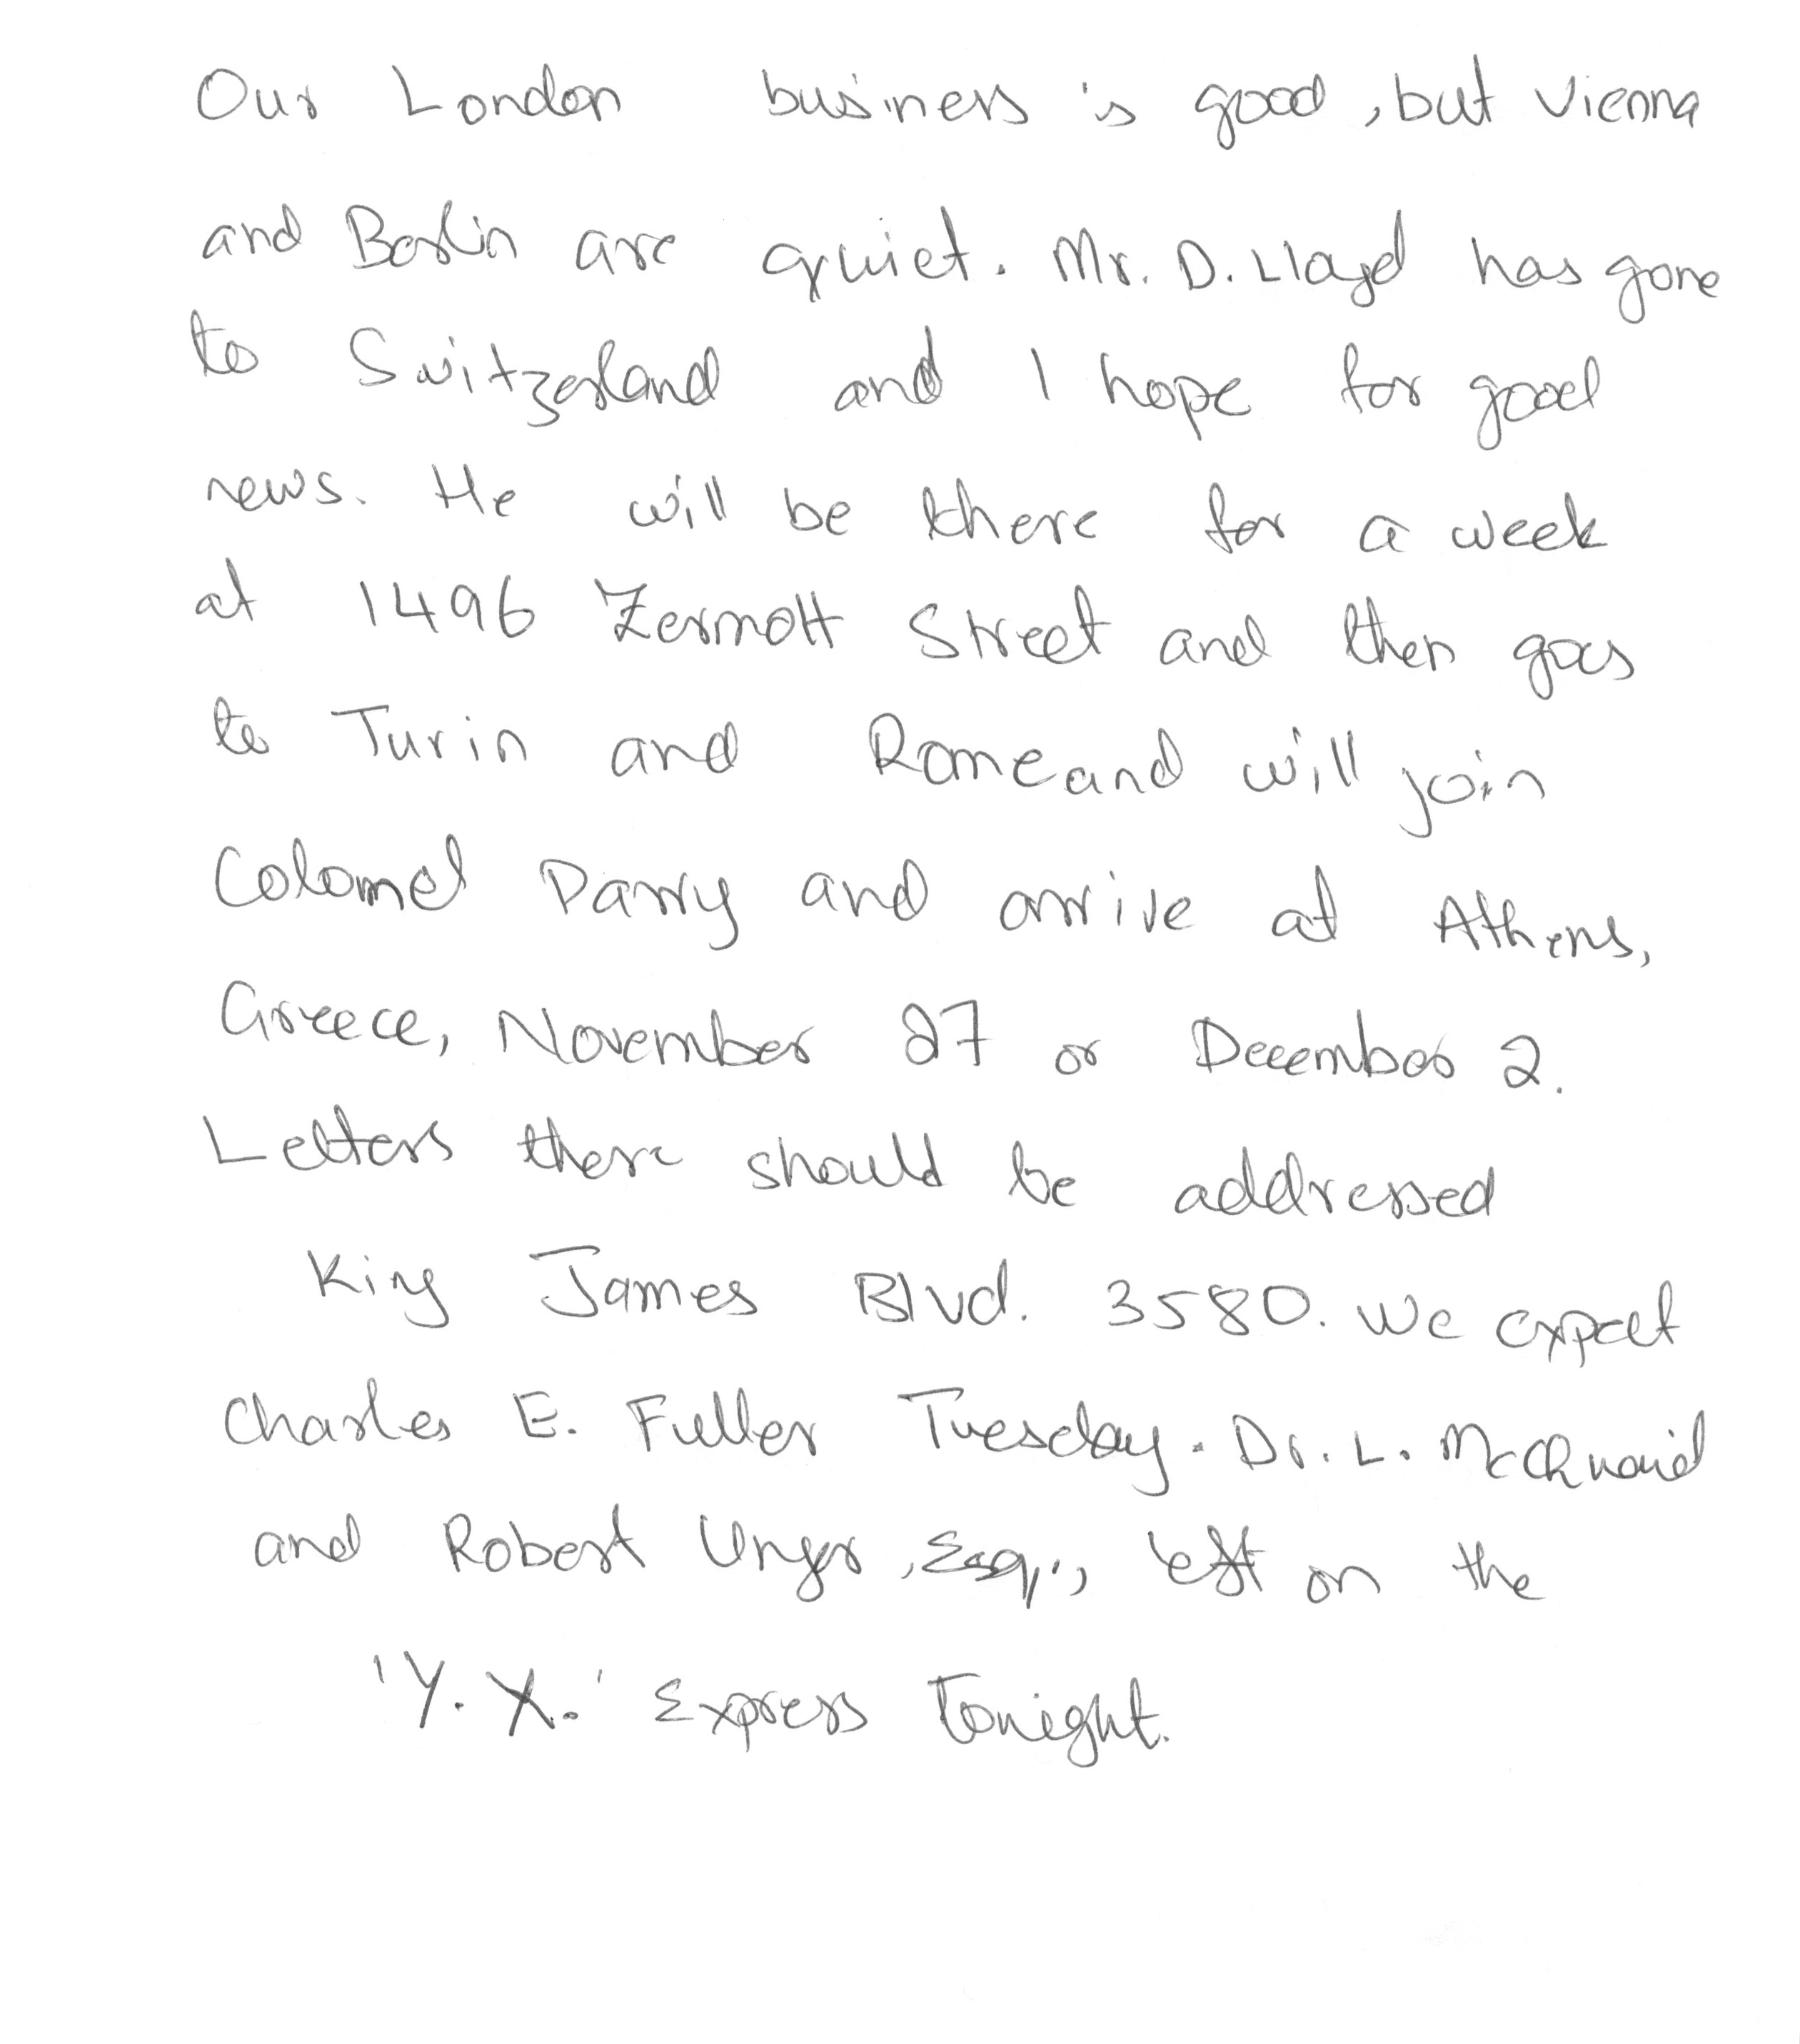 Our London business is good, but Vienna
and Berlin are quiet. Mr. D. Lloyd has gone
to Switzerland and I hope for good
news. He will be there for a week
at 1496 Zermott Street and then goes
to Turin and Rome and will join
Colonel Parry and arrive at Athens,
Greece, November 27 or December 2.
Letters there should be addressed
King James Blvd. 3580. We expect
Charles E. Fuller Tuesday. Dr. L. McQuaid
and Robert Unger, Esq., left on the
'Y.X.' Express tonight.